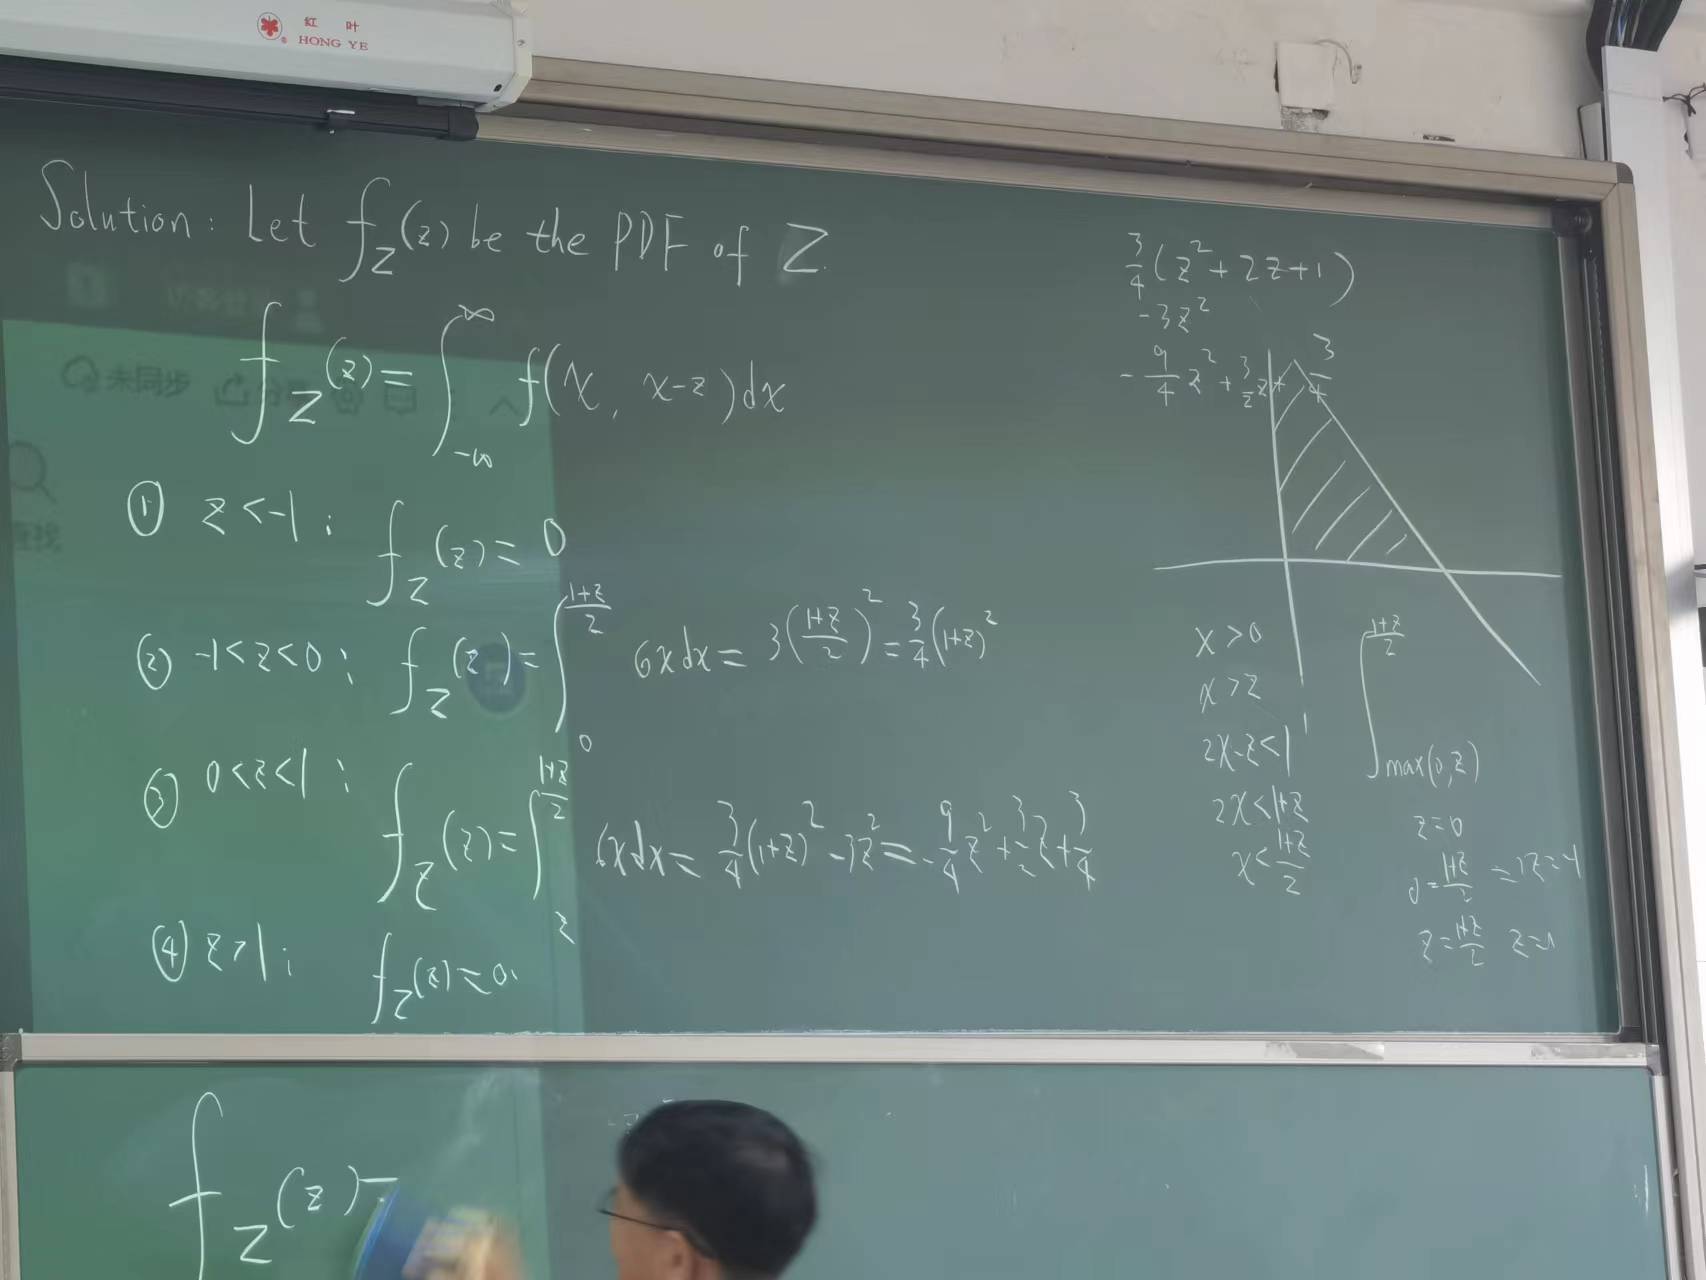 红 叶
HONG YE
Solution: Let f_Z(z) be the PDF of Z.
f_Z(z) = ∫_{-∞}^{∞} f(x, x-z)dx
未同步
① z<-1: f_Z(z) = 0
② -1<z<0: f_Z(z) = ∫_0^{\frac{1+z}{2}} 6xdx = 3(\frac{1+z}{2})^2 = \frac{3}{4}(1+z)^2
③ 0<z<1: f_Z(z) = ∫_z^{\frac{1+z}{2}} 6xdx = \frac{3}{4}(1+z)^2 - 3z^2 = -\frac{9}{4}z^2 + \frac{3}{2}z + \frac{3}{4}
④ z>1: f_Z(z) = 0.
f_Z(z) =
\frac{3}{4}(z^2+2z+1)
-3z^2
-\frac{9}{4}z^2 + \frac{3}{2}z + \frac{3}{4}
x>0
x>z
2x-z<1
2x<1+z
x<\frac{1+z}{2}
∫_{max(0,z)}^{\frac{1+z}{2}}
z=0
0=\frac{1+z}{2} => z=-1
z=\frac{1+z}{2} z=1